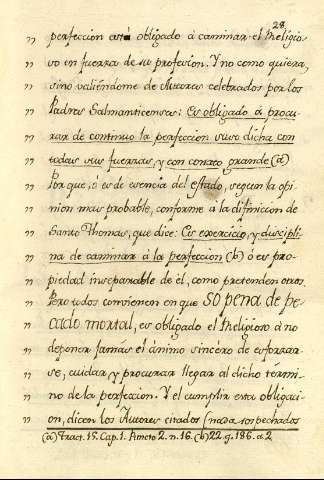 28.
" perfeccion está obligado á caminar el Religio-
" so en fuerza de su profesion. Y no como quiera,
" sino valiéndome de Autores celebrados por los
" Padres Salmanticenses: Es obligado á procu-
" rar de continuo la perfeccion suso dicha con
" todas sus fuerzas, y con conato grande (a)
" Porque, ó es de esencia del estado, segun la opi-
" nion mas probable, conforme a la difinicion de
" Santo Thomas, que dice: Es exercicio, y discipli-
" na de caminar á la perfeccion (b) ó es pro-
" piedad inseparable de él, como pretenden otros.
" Pero todos convienen en que so pena de pe-
" cado mortal, es obligado el Religioso á no
" deponer jamás el ánimo sincéro de esforzar-
" se, cuidar, y procurar llegar al dicho térmi-
" no de la perfeccion. Y el cumplir esta obligaci-
" on, dicen los Autores citados (nada sospechados
(a) Tract. 15. Cap. 1. Puncto 2. n. 16. (b) 22. q. 186. a. 2